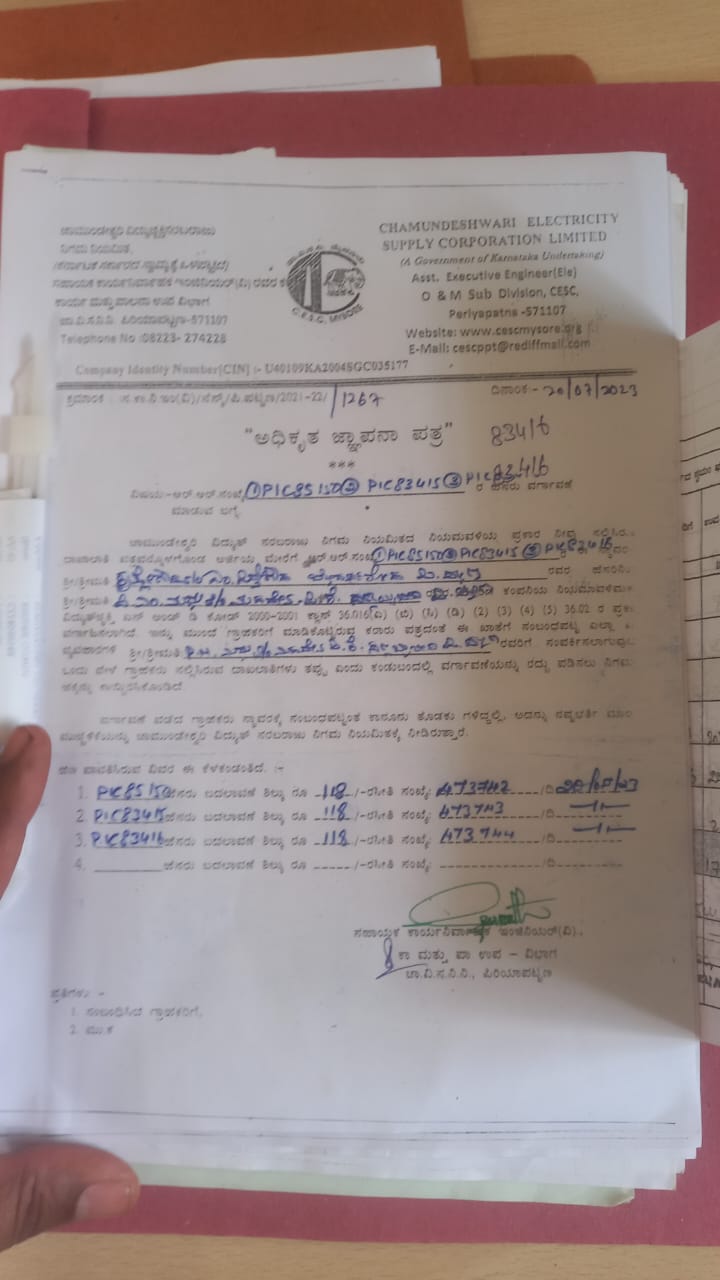 ಚಾಮುಂಡೇಶ್ವರಿ ವಿದ್ಯುಚ್ಛಕ್ತಿ ಸರಬರಾಜು
ನಿಗಮ ನಿಯಮಿತ,
(ಕರ್ನಾಟಕ ಸರ್ಕಾರದ ಸ್ವಾಮ್ಯಕ್ಕೆ ಒಳಪಟ್ಟಿದೆ)
ಸಹಾಯಕ ಕಾರ್ಯನಿರ್ವಾಹಕ ಇಂಜಿನಿಯರ್(ವಿ) ರವರ ಕ
ಕಾರ್ಯ ಮತ್ತು ಪಾಲನಾ ಉಪ ವಿಭಾಗ
ಚಾ.ವಿ.ಸ.ನಿ.ನಿ. ಪಿರಿಯಾಪಟ್ಟಣ-571107
Telephone No :08223- 274228
C.E.S.C, MYSORE
CHAMUNDESHWARI ELECTRICITY
SUPPLY CORPORATION LIMITED
(A Government of Karnataka Undertaking)
Asst. Executive Engineer(Ele)
O & M Sub Division, CESC,
Periyapatna -571107
Website: www.cescmysore.org
E-Mail: cescppt@rediffmail.com
Company Identity Number[CIN] :- U40109KA2004SGC035177
ಕ್ರಮಾಂಕ :-ಸ.ಕಾ.ನಿ.ಇಂ(ವಿ)/ಪಿ.ಪಟ್ಟಣ/2021-22/ /1267 ದಿನಾಂಕ:- 20/07/2023
"ಅಧಿಕೃತ ಜ್ಞಾಪನಾ ಪತ್ರ" 83416
***
ವಿಷಯ:-ಆರ್.ಆರ್.ಸಂಖ್ಯೆ ① PIC85150 ② PIC83415 ③ PIC83416 ರ ಹೆಸರು ವರ್ಗಾವಣೆ
ಮಾಡುವ ಬಗ್ಗೆ.
ಚಾಮುಂಡೇಶ್ವರಿ ವಿದ್ಯುತ್ ಸರಬರಾಜು ನಿಗಮ ನಿಯಮಿತದ ನಿಯಮವಳಿಯ ಪ್ರಕಾರ ನೀವು ಸಲ್ಲಿಸಿರು
ದಾಖಲಾತಿ ಪತ್ರವನ್ನೊಳಗೊಂಡ ಅರ್ಜಿಯ ಮೇರೆಗೆ ಆರ್.ಆರ್.ಸಂಖ್ಯೆ ① PIC85150 ② PIC83415 ③ PIC83416
ಶ್ರೀ/ಶ್ರೀಮತಿ ರವರ ಹೆಸರಿನಿಂ
ಶ್ರೀ/ಶ್ರೀಮತಿ ಕಂಪನಿಯ ನಿಯಮಾವಳಿಯ
ವಿದ್ಯುಚ್ಛಕ್ತಿ ಎಸ್ ಅಂಡ್ ಡಿ ಕೋಡ್ 2000-2001 ಕ್ಲಾಸ್ 36.01(ಎ) (ಬಿ) (ಸಿ) (ಡಿ) (2) (3) (4) (5) 36.02 ರ ಪ್ರಕ
ವರ್ಗಾಯಿಸಲಾಗಿದೆ. ಇನ್ನು ಮುಂದೆ ಗ್ರಾಹಕರಿಗೆ ಮಾಡಿಕೊಟ್ಟಿರುವ ಕರಾರು ಪತ್ರದಂತೆ ಈ ಖಾತೆಗೆ ಸಂಬಂಧಪಟ್ಟ ಎಲ್ಲಾ
ವ್ಯವಹಾರಗಳ ಶ್ರೀ/ಶ್ರೀಮತಿ ರವರಿಗೆ ಸಂಪರ್ಕಿಸಲಾಗುವು
ಒಂದು ವೇಳೆ ಗ್ರಾಹಕರು ಸಲ್ಲಿಸಿರುವ ದಾಖಲಾತಿಗಳು ತಪ್ಪು ಎಂದು ಕಂಡುಬಂದಲ್ಲಿ ವರ್ಗಾವಣೆಯನ್ನು ರದ್ದು ಪಡಿಸಲು ನಿಗಮ
ಹಕ್ಕನ್ನು ಕಾಯ್ದಿರಿಸಿಕೊಂಡಿದೆ.
ವರ್ಗಾವಣೆ ಪಡೆದ ಗ್ರಾಹಕರು ಸ್ಥಾವರಕ್ಕೆ ಸಂಬಂಧಪಟ್ಟಂತೆ ಕಾನೂನು ತೊಡಕು ಗಳಿದ್ದಲ್ಲಿ, ಅದನ್ನು
ಮುಚ್ಚಳಿಕೆಯನ್ನು ಚಾಮುಂಡೇಶ್ವರಿ ವಿದ್ಯುತ್ ಸರಬರಾಜು ನಿಗಮ ನಿಯಮಿತಕ್ಕೆ ನೀಡಿರುತ್ತಾರೆ.
ಹಣ ಪಾವತಿಸಿರುವ ವಿವರ ಈ ಕೆಳಕಂಡಂತಿದೆ. :-
1. PIC85150 ಹೆಸರು ಬದಲಾವಣೆ ಶುಲ್ಕ ರೂ 118 /-ರಶೀತಿ ಸಂಖ್ಯೆ: 473742 /ದಿ
2. PIC83415 ಹೆಸರು ಬದಲಾವಣೆ ಶುಲ್ಕ ರೂ 118 /-ರಶೀತಿ ಸಂಖ್ಯೆ: 473743 /ದಿ -11-
3. PIC83416 ಹೆಸರು ಬದಲಾವಣೆ ಶುಲ್ಕ ರೂ 118 /-ರಶೀತಿ ಸಂಖ್ಯೆ: 473744 /ದಿ -11-
4. ಹೆಸರು ಬದಲಾವಣೆ ಶುಲ್ಕ ರೂ /-ರಶೀತಿ ಸಂಖ್ಯೆ: /ದಿ
ಸಹಾಯಕ ಕಾರ್ಯನಿರ್ವಾಹಕ ಇಂಜಿನಿಯರ್(ವಿ).,
ಕಾ ಮತ್ತು ಪಾ ಉಪ – ವಿಭಾಗ
ಚಾ.ವಿ.ಸ.ನಿ.ನಿ., ಪಿರಿಯಾಪಟ್ಟಣ
ಪ್ರತಿಗಳು: -
1. ಸಂಬಂಧಿಸಿದ ಗ್ರಾಹಕರಿಗೆ.
2. ಮು.ಕ